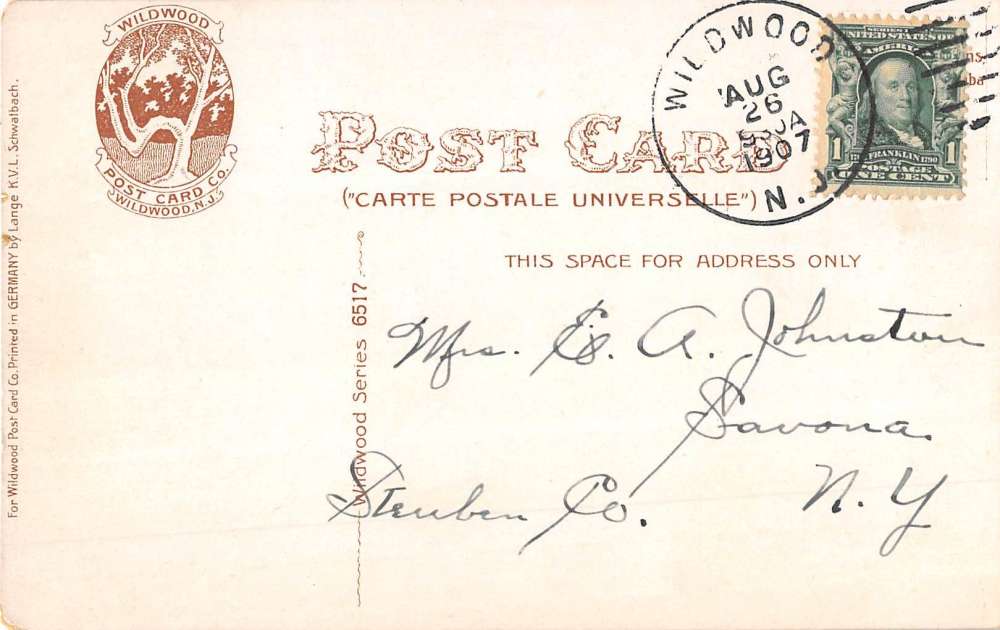 WILDWOOD
POST CARD CO.
WILDWOOD, N.J.
For Wildwood Post Card Co. Printed in GERMANY by Lange K.V.L. Schwalbach.
POST CARD
("CARTE POSTALE UNIVERSELLE")
WILDWOOD
AUG
26
1907
N. J.
SERIES 1902
UNITED STATES OF
AMERICA
1 1
1706 FRANKLIN 1790
POSTAGE
ONE CENT
THIS SPACE FOR ADDRESS ONLY
Wildwood Series 6517.
Mrs. E. A. Johnston
Savona.
Steuben Co. N. Y